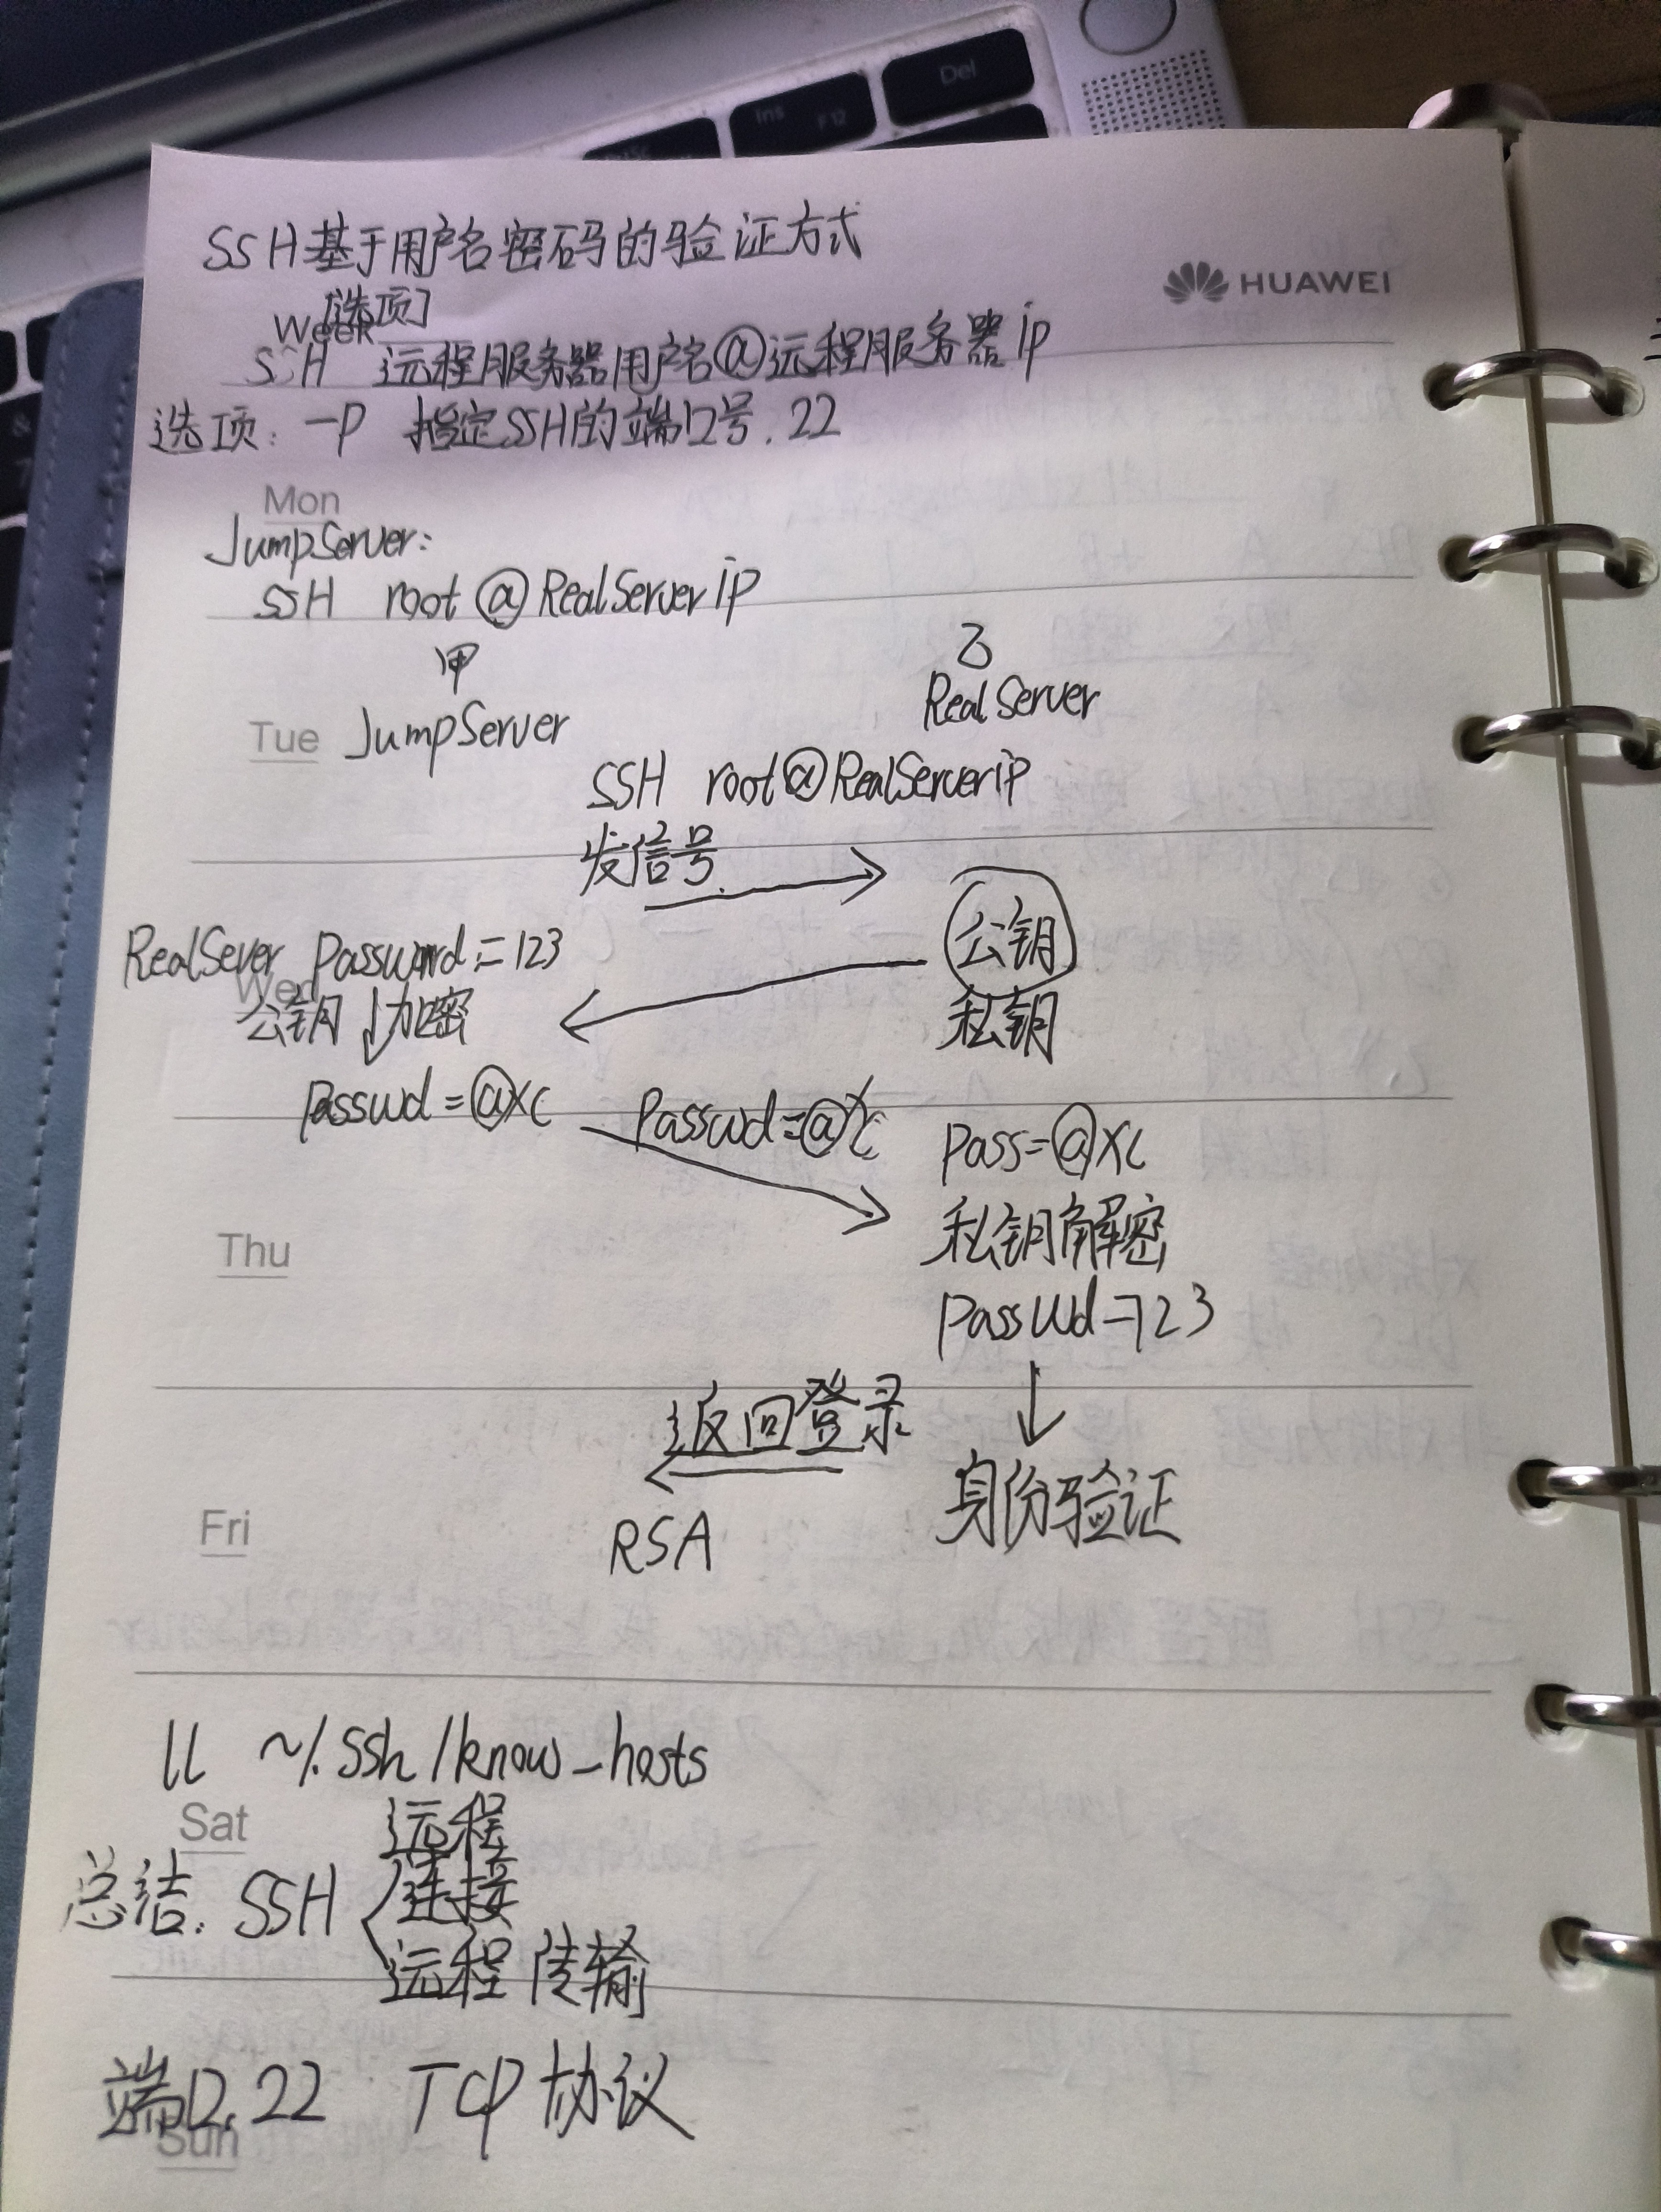 Ins
F12
Del
SSH基于用户名密码的验证方式
HUAWEI
Week
[选项]
SSH 远程服务器用户名@远程服务器ip
选项: -P 指定SSH的端口号.22
Mon
JumpServer:
SSH root@RealServerip
甲 乙
Tue JumpServer RealServer
SSH root@RealServerip
发信号
RealSever Password=123 公钥
Wed
公钥↓加密 私钥
Passwd=@xc Passwd=@xc Pass=@xc
私钥解密
Thu
PassWd=123
返回登录
身份验证
Fri
RSA
ll ~/.ssh/know_hosts
Sat
远程
总结: SSH 连接
远程传输
端口.22 TCP协议
Sun